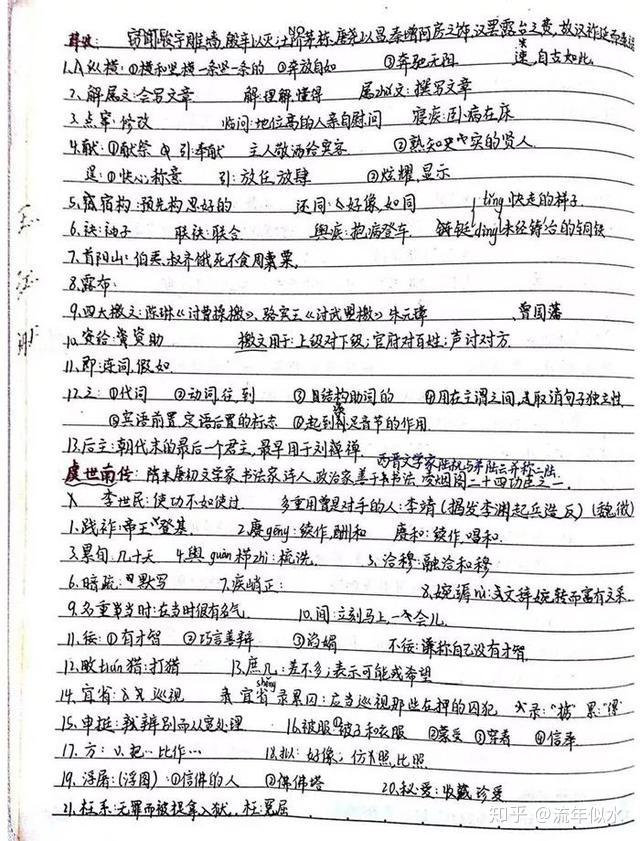 窃闻峻宇雕墙,殷辛以灭;土阶茅栋,唐尧以昌.秦增阿房之饰,汉罢露台之费,故汉祚延而秦
速,自古如此.
1.纵横:①横和竖,横一条竖一条的 ②奔放自如 ③奔驰无阻
2.解属文:会写文章 解:理解 懂得 属文:撰写文章
3.点窜:修改 临问:地位高的人亲自慰问 寝疾:卧病在床
4.献:①献祭 引:奉献 主人敬酒给宾客 ②熟知史实的贤人
逞:①快心,称意 引:放任,放肆 ②炫耀,显示
5.宿构:预先构思好的 还同:好像,如同 tǐng 快走的样子
6.袂:袖子 联袂:联合 舆疾:抱病登车 铤 dìng 未经铸冶的铜铁
7.首阳山:伯夷、叔齐饿死不食周粟
8.露布:
9.四大檄文:陈琳《讨曹操檄》、骆宾王《讨武曌檄》 朱元璋 、曾国藩
10.资给:资助 檄文用于:上级对下级;官府对百姓;声讨对方
11.即:连词,假如
12.之:①代词 ②动词,往,到 ③结构助词的 ④用在主谓之间,取消句子独立性
⑤宾语前置,定语后置的标志 ⑥起到补足音节的作用
13.后主:朝代末的最后一个君主,最早用于刘禅
西晋文学家陆机与弟陆云并称二陆
虞世南传:隋末唐初文学家 书法家 诗人 政治家 善于书法 凌烟阁二十四功臣之一
李世民:使功不如使过 多重用曾是对手的人:李靖(揭发李渊起兵造反)(魏徵)
1.践祚:帝王登基 2.赓gēng:续作,酬和 赓和:续作,唱和.
3.累旬:几十天 4.盥guàn栉zhì:梳洗. 5.洽穆:融洽和穆
6.暗疏:默写 7.峭正: 8.婉缛rù:文辞婉转而富有文采.
9.名重当时:在当时很有名气 10.间:立刻马上,一会儿
11.佞:①有才智 ②巧言善辩 ③谄媚 不佞:谦称自己没有才智
12.畋tián猎:打猎 13.庶几:差不多;表示可能或希望
shěng
14.宜省:巡视 宜省录累囚:应当巡视那些在押的囚犯 录:
15.申挺:辨别而从宽处理 16.被服①被子和衣服 ②蒙受 ③穿着 ④信奉
17.方:以…把…比作… 18.拟:好像,仿照,比照
19.浮屠:(浮图)①信佛的人 ②佛塔 20.秘爱:收藏,珍爱
21.枉系:无罪而被捉拿入狱. 枉:冤屈
知乎 @流年似水